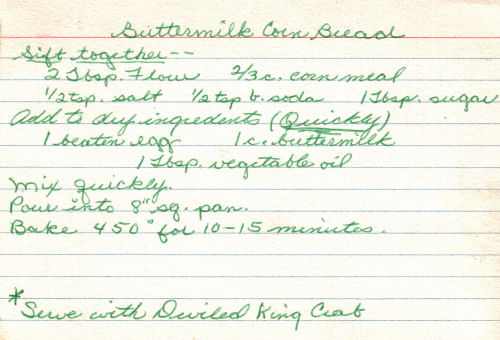 Buttermilk Corn Bread
Sift together--
2 Tbsp. Flour 2/3 c. corn meal
1/2 tsp. salt 1/2 tsp b. soda 1 Tbsp. sugar
Add to dry ingredents (Quickly)
1 beaten egg 1 c. buttermilk
1 Tbsp. vegetable oil
Mix quickly.
Pour into 8" sq. pan.
Bake 450° for 10-15 minutes.
*Serve with Deviled King Crab